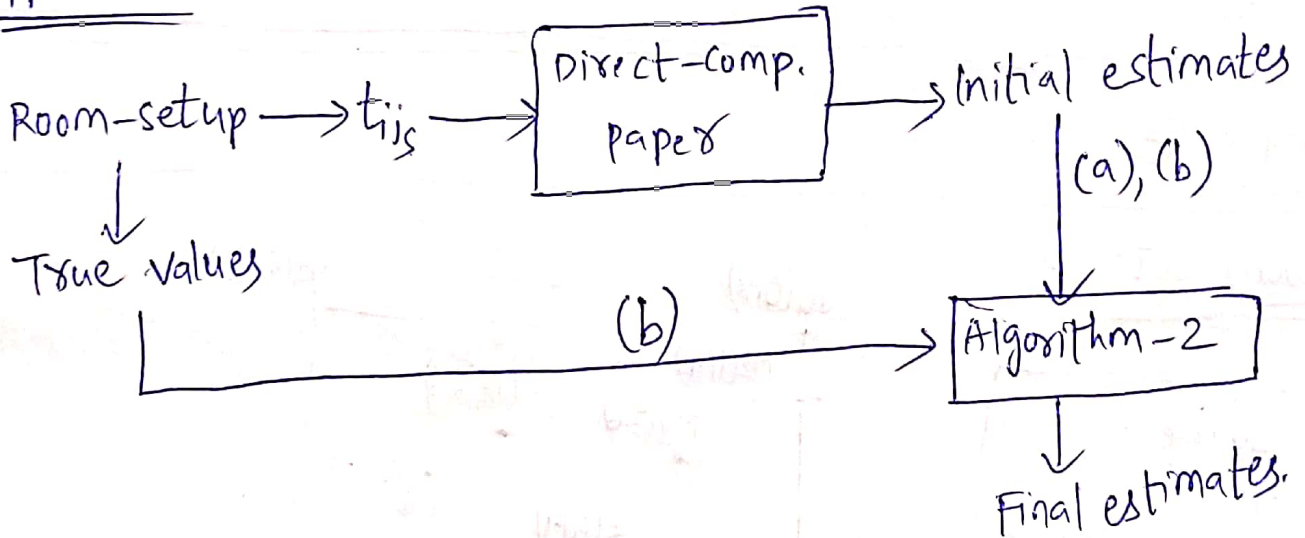 Room-setup → tijs → Direct-Comp. paper → Initial estimates
(a), (b)
True values
(b)
Algorithm-2
Final estimates.